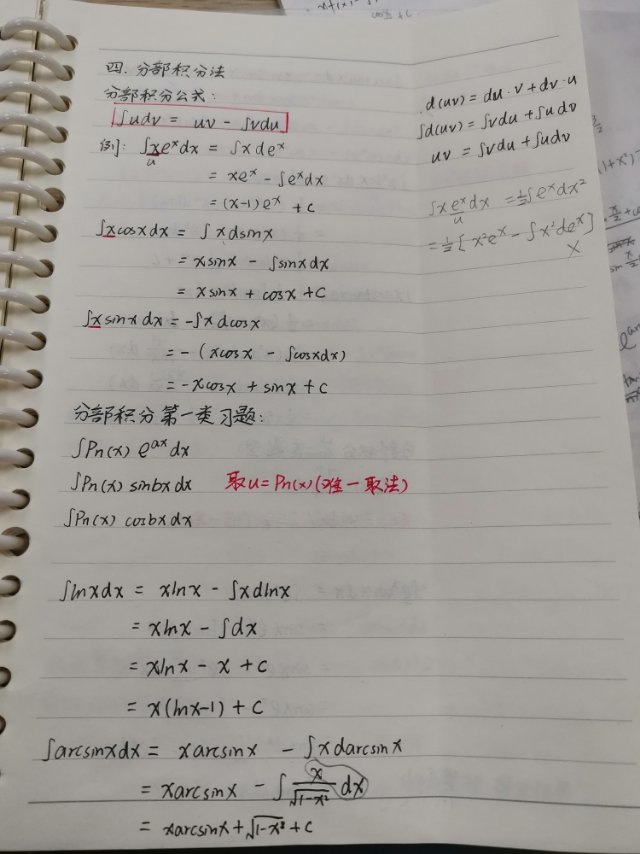 四. 分部积分法
分部积分公式:
∫udv = uv - ∫vdu
d(uv) = du·v + dv·u
∫d(uv) = ∫vdu + ∫udv
uv = ∫vdu + ∫udv
例: ∫xeˣdx = ∫xdeˣ
u
= xeˣ - ∫eˣdx
= (x-1)eˣ + c
∫xeˣdx = ½∫eˣdx²
u
= ½[x²eˣ - ∫x²deˣ]
×
∫xcosxdx = ∫xdsinx
= xsinx - ∫sinxdx
= xsinx + cosx + c
∫xsinxdx = -∫xdcosx
= -(xcosx - ∫cosxdx)
= -xcosx + sinx + c
分部积分第一类习题:
∫Pn(x) eᵃˣdx
∫Pn(x) sinbxdx 取u=Pn(x)(唯一取法)
∫Pn(x) cosbxdx
∫lnxdx = xlnx - ∫xdlnx
= xlnx - ∫dx
= xlnx - x + c
= x(lnx-1) + c
∫arcsinxdx = xarcsinx - ∫xdarcsinx
= xarcsinx - ∫x/√(1-x²) dx
= xarcsinx + √(1-x²) + c